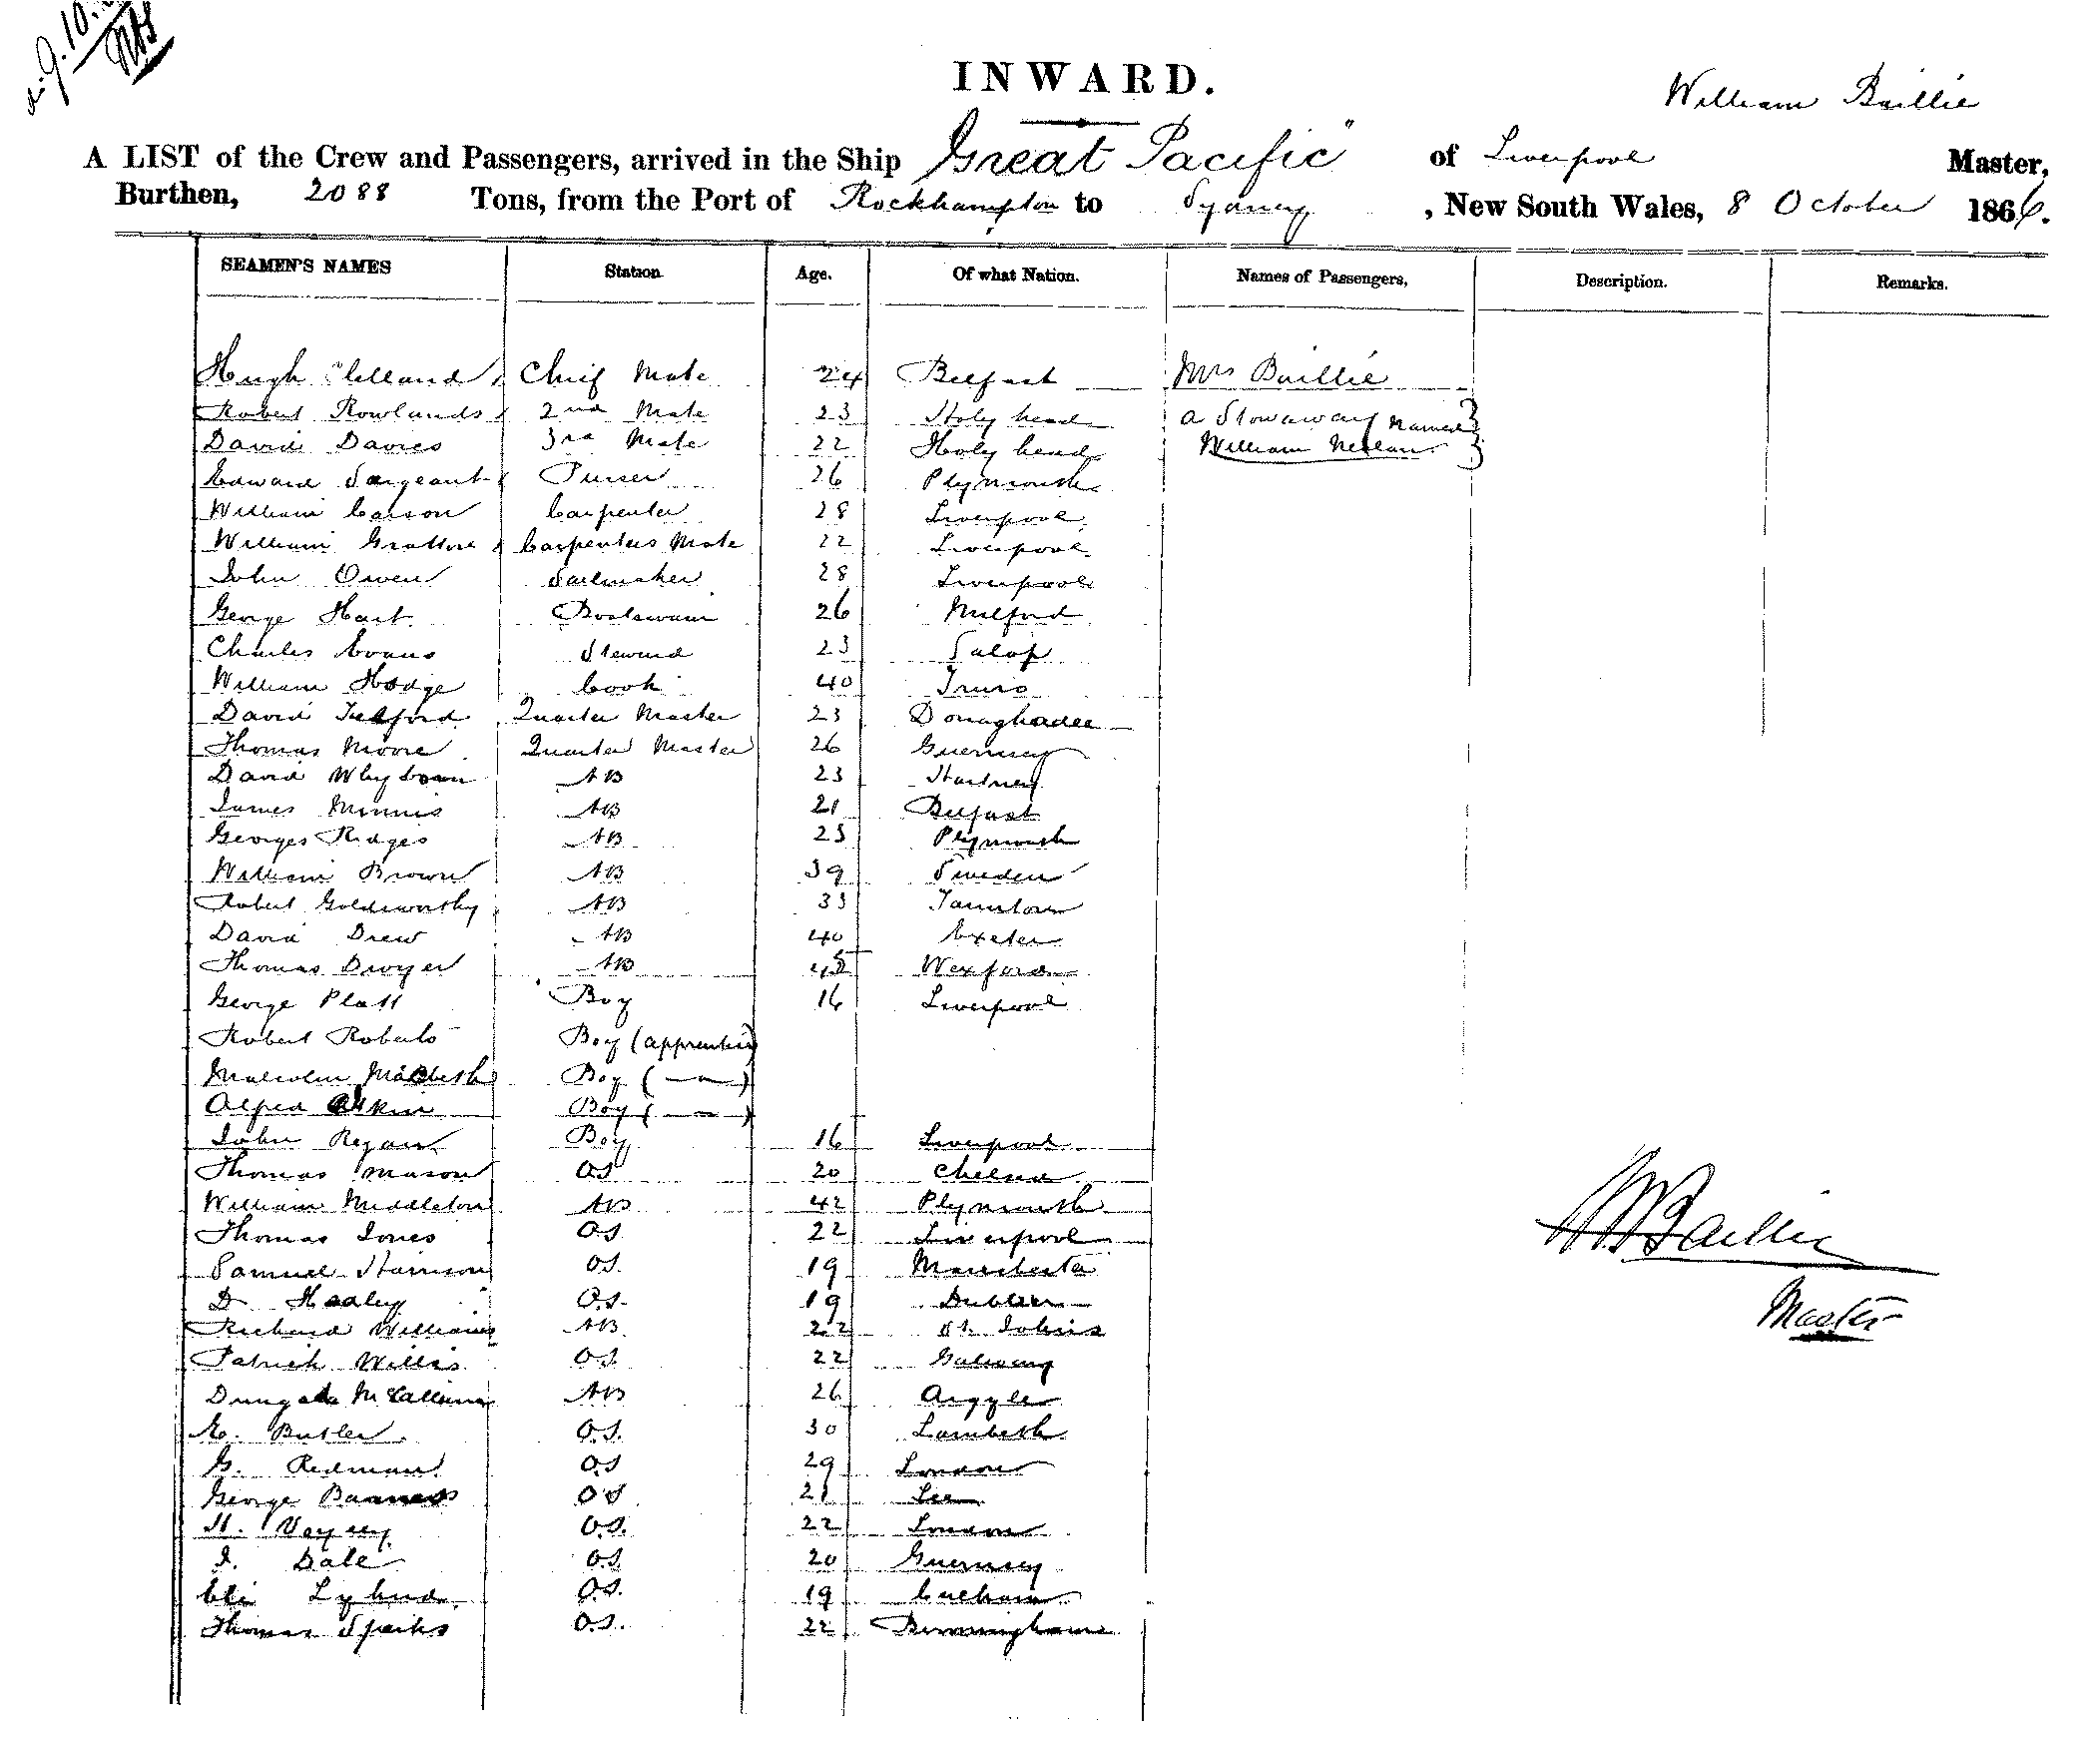 INWARD.
William Baillie
A LIST of the Crew and Passengers, arrived in the Ship "Great Pacific" of Liverpool Master,
Burthen, 2088 Tons, from the Port of Rockhampton to Sydney, New South Wales, 8 October 1866.
SEAMEN'S NAMES Station Age. Of what Nation. Names of Passengers, Description. Remarks.
Hugh Clelland Chief Mate 24 Belfast Mrs Baillie
Robert Rowlands 2nd Mate 23 Holy head a Stowaway named
David Davies 3rd Mate 22 Holy head William
Edward Sargeant Purser 26 Plymouth
William Carson Carpenter 28 Liverpool
William Grattore Carpenters Mate 22 Liverpool
John Owen Sailmaker 28 Liverpool
George Hart Boatswain 26 Milford
Charles Evans Steward 23 Salop
William Hodge Cook 40 Truro
David Telford Quarter Master 23 Donaghadee
Thomas Moore Quarter Master 26 Guernsey
David Whyborn AB 23
James Minnis AB 21 Belfast
Georges Ridges AB 23 Plymouth
William Brown AB 39 Sweden
Robert Goldsworthy AB 33 Taunton
David Drew AB 40 Exeter
Thomas Dwyer AB Wexford
George Platt Boy 16 Liverpool
Robert Roberts Boy (apprentice)
Malcolm Macbeth Boy ( — " — )
Alfred Atkin Boy ( — " — )
John Regan Boy 16 Liverpool
Thomas Mason OS 20 Chelsea
William Middleton AB 42 Plymouth
Thomas Jones OS 22 Liverpool
Samuel Harrison OS. 19 Manchester
D Healey O.S. 19 Dublin
Richard Williams AB 22 St. Johns
Patrick Willis OS. 22 Galway
McCallum AB 26 Argyle
E. Butler O.S. 30 Lambeth
G. Redman OS 29 London
George OS 21 Lee
H. Voysey O.S. 22 London
J. Dale O.S. 20 Guernsey
Eli O.S. 19
Thomas Sparks O.S. 22 Birmingham
W Baillie
Master